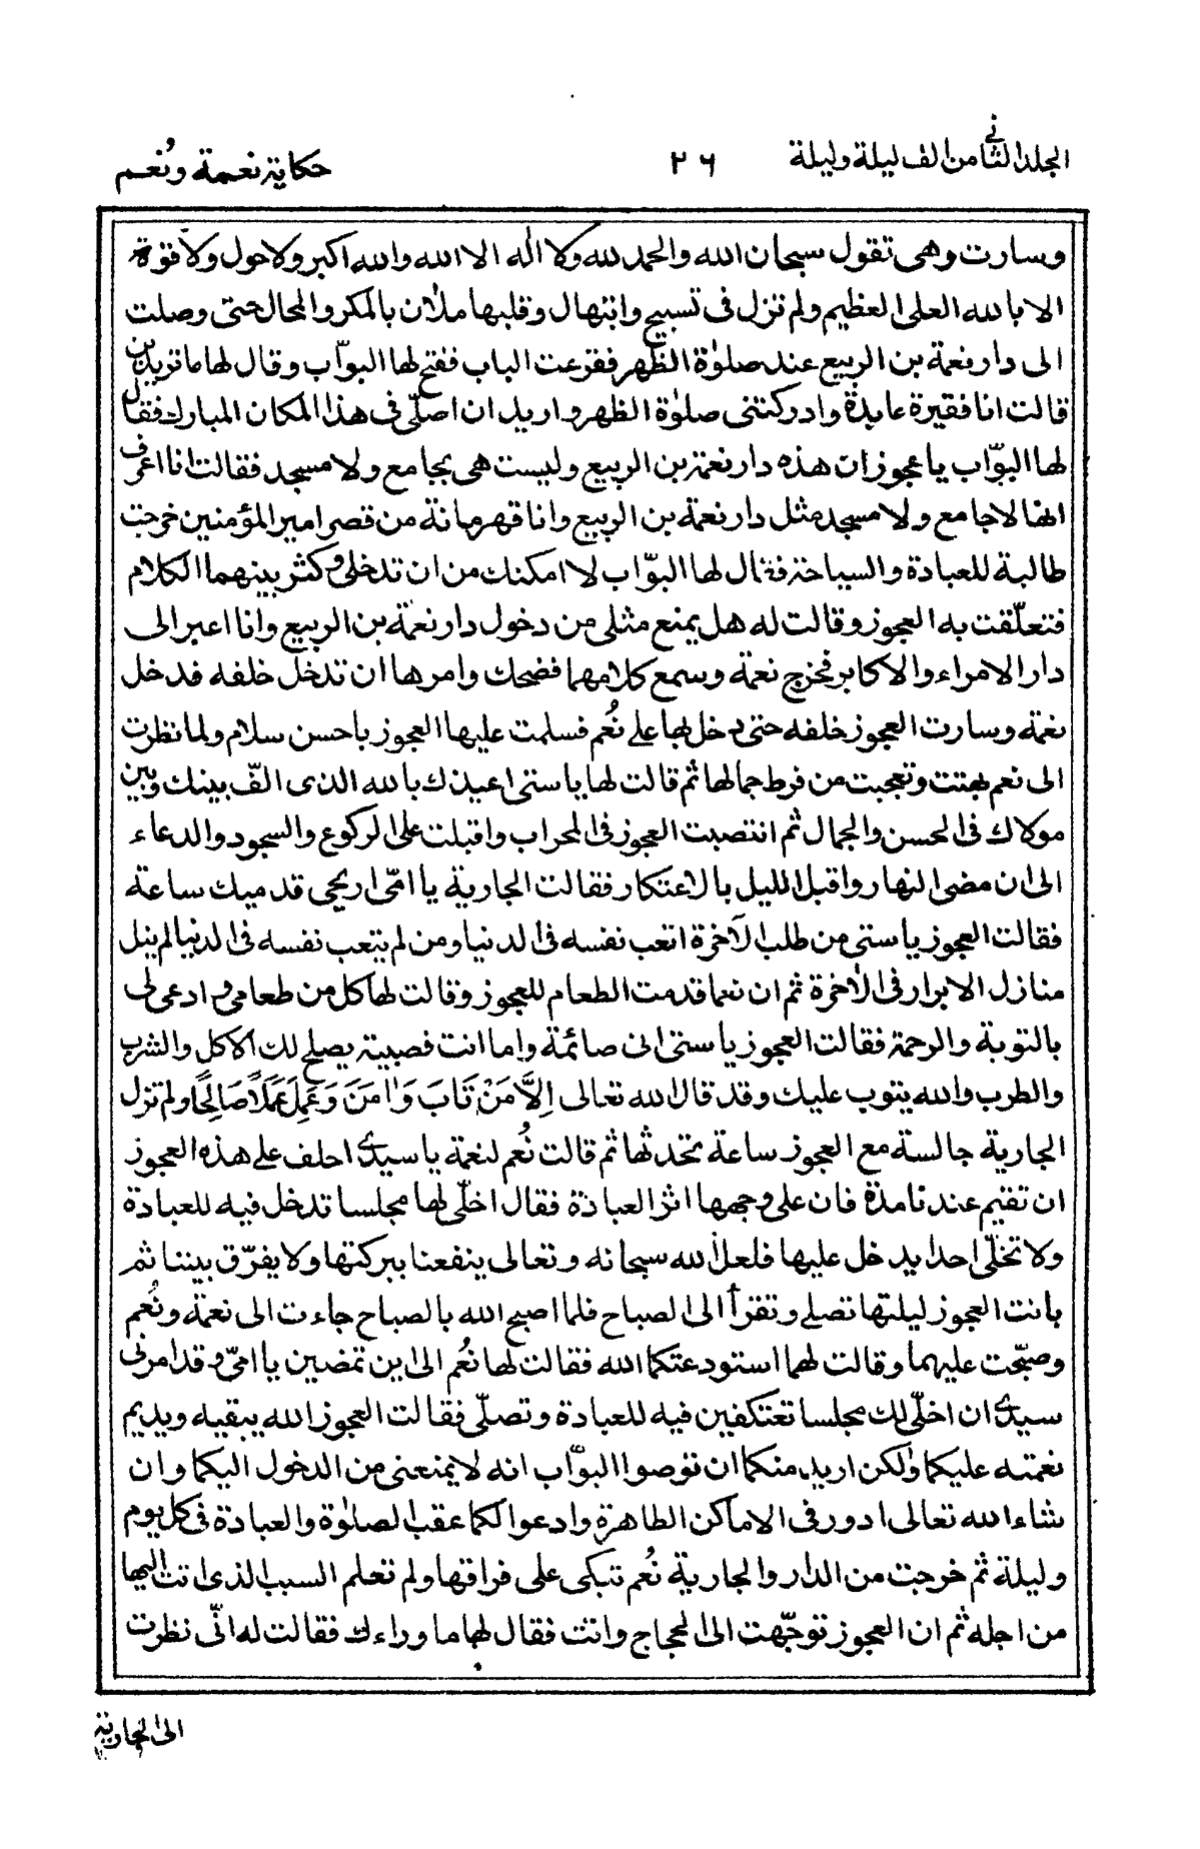 المجلد الثاني من الف ليلة وليلة ٢٦ حكاية نعمة ونُعم
وسارت وهى تقول سبحان الله والحمد لله ولا اله الا الله والله اكبر ولا حول ولا قوة
الا بالله العلى العظيم ولم تزل فى تسبيح وابتهال وقلبها ملآن بالمكر والمحال حتى وصلت
الى دار نعمة بن الربيع عند صلوٰة الظهر فقرعت الباب ففتح لها البوّاب وقال لها ما تريدين
قالت انا فقيرة عابدة وادركتنى صلوٰة الظهر واريد ان اصلّى فى هذا المكان المبارك فقال
لها البوّاب يا عجوز ان هذه دار نعمة بن الربيع وليست هى بجامع ولا مسجد فقالت انا اعرف
انها لا جامع ولا مسجد مثل دار نعمة بن الربيع وانا قهرمانة من قصر امير المؤمنين خرجت
طالبة للعبادة والسياحة فقال لها البوّاب لا امكنك من ان تدخلى وكثر بينهما الكلام
فتعلّقت به العجوز وقالت له هل يمنع مثلى من دخول دار نعمة بن الربيع وانا اعبر الى
دار الامراء والاكابر فخرج نعمة وسمع كلامهما فضحك وامرها ان تدخل خلفه فدخل
نعمة وسارت العجوز خلفه حتى دخل بها على نُعم فسلمت عليها العجوز باحسن سلام ولما نظرت
الى نعم بهتت وتعجبت من فرط جمالها ثم قالت لها يا ستى اعيذك بالله الذى الّف بينك وبين
مولاك فى الحسن والجمال ثم انتصبت العجوز فى المحراب واقبلت على الركوع والسجود والدعاء
الى ان مضى النهار واقبل الليل بالاعتكار فقالت الجارية يا امّى اريحى قدميك ساعة
فقالت العجوز يا ستى من طلب الآخرة اتعب نفسه فى الدنيا ومن لم يتعب نفسه فى الدنيا لم ينل
منازل الابرار فى الآخرة ثم ان نعما قدمت الطعام للعجوز وقالت لها كل من طعامى وادعى لى
بالتوبة والرحمة فقالت العجوز يا ستى انى صائمة واما انت فصبية يصلح لك الاكل والشرب
والطرب والله يتوب عليك وقد قال الله تعالى اِلاَّ مَنْ تَابَ وَاٰمَنَ وَعَمِلَ عَمَلاً صَالِحًا ولم تزل
الجارية جالسة مع العجوز ساعة تحدثها ثم قالت نُعم لنعمة يا سيدى احلف على هذه العجوز
ان تقيم عندنا مدة فان على وجهها اثر العبادة فقال اخلّى لها مجلسا تدخل فيه للعبادة
ولا تخلّى احدا يدخل عليها فلعل الله سبحانه وتعالى ينفعنا ببركتها ولا يفرّق بيننا ثم
باتت العجوز ليلتها تصلى وتقرأ الى الصباح فلما اصبح الله بالصباح جاءت الى نعمة ونُعم
وصبّحت عليهما وقالت لهما استودعتكما الله فقالت لها نُعم الى اين تمضين يا امّى وقد امرنى
سيدى ان اخلّى لك مجلسا تعتكفين فيه للعبادة وتصلّى فقالت العجوز الله يبقيه ويديم
نعمته عليكما ولكن اريد منكما ان توصوا البوّاب انه لا يمنعنى من الدخول اليكما وان
شاء الله تعالى ادور فى الاماكن الطاهرة وادعو لكما عقب الصلوٰة والعبادة فى كل يوم
وليلة ثم خرجت من الدار والجارية نُعم تبكى على فراقها ولم تعلم السبب الذى اتت اليها
من اجله ثم ان العجوز توجّهت الى الحجاج واتت فقال لها ما وراءك فقالت له انّى نظرت
الى الجارية